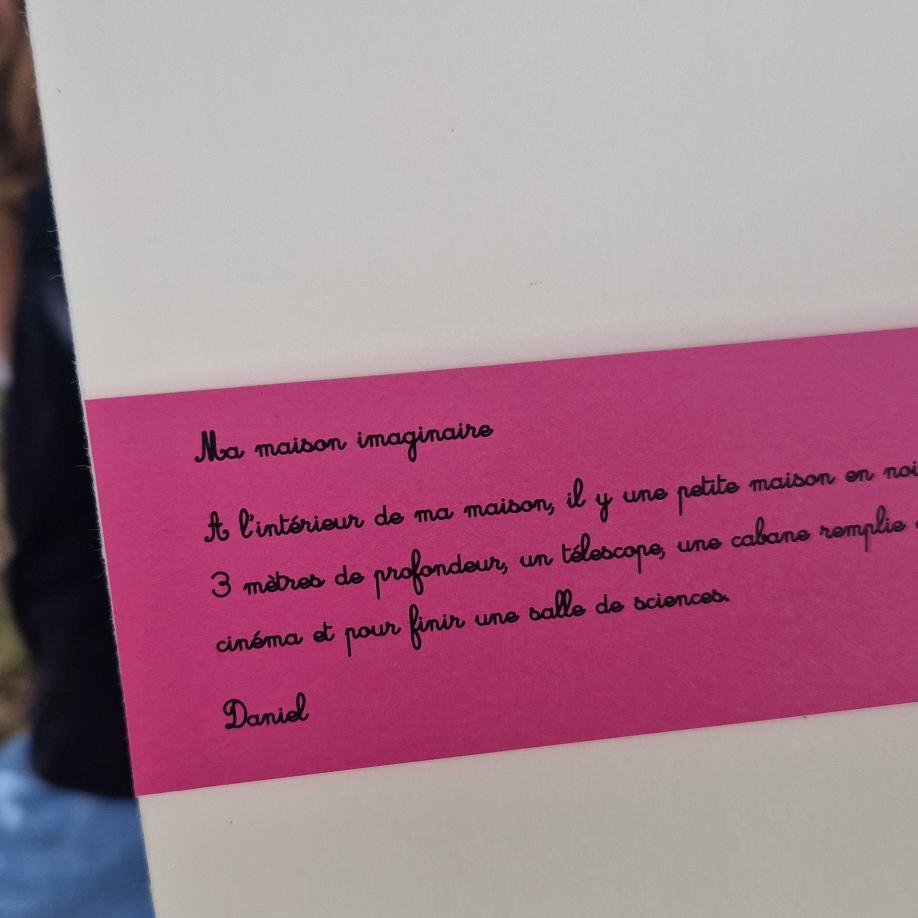 Ma maison imaginaire
A l'intérieur de ma maison, il y une petite maison en
3 mètres de profondeur, un télescope, une cabane remplie
cinéma et pour finir une salle de sciences.
Daniel